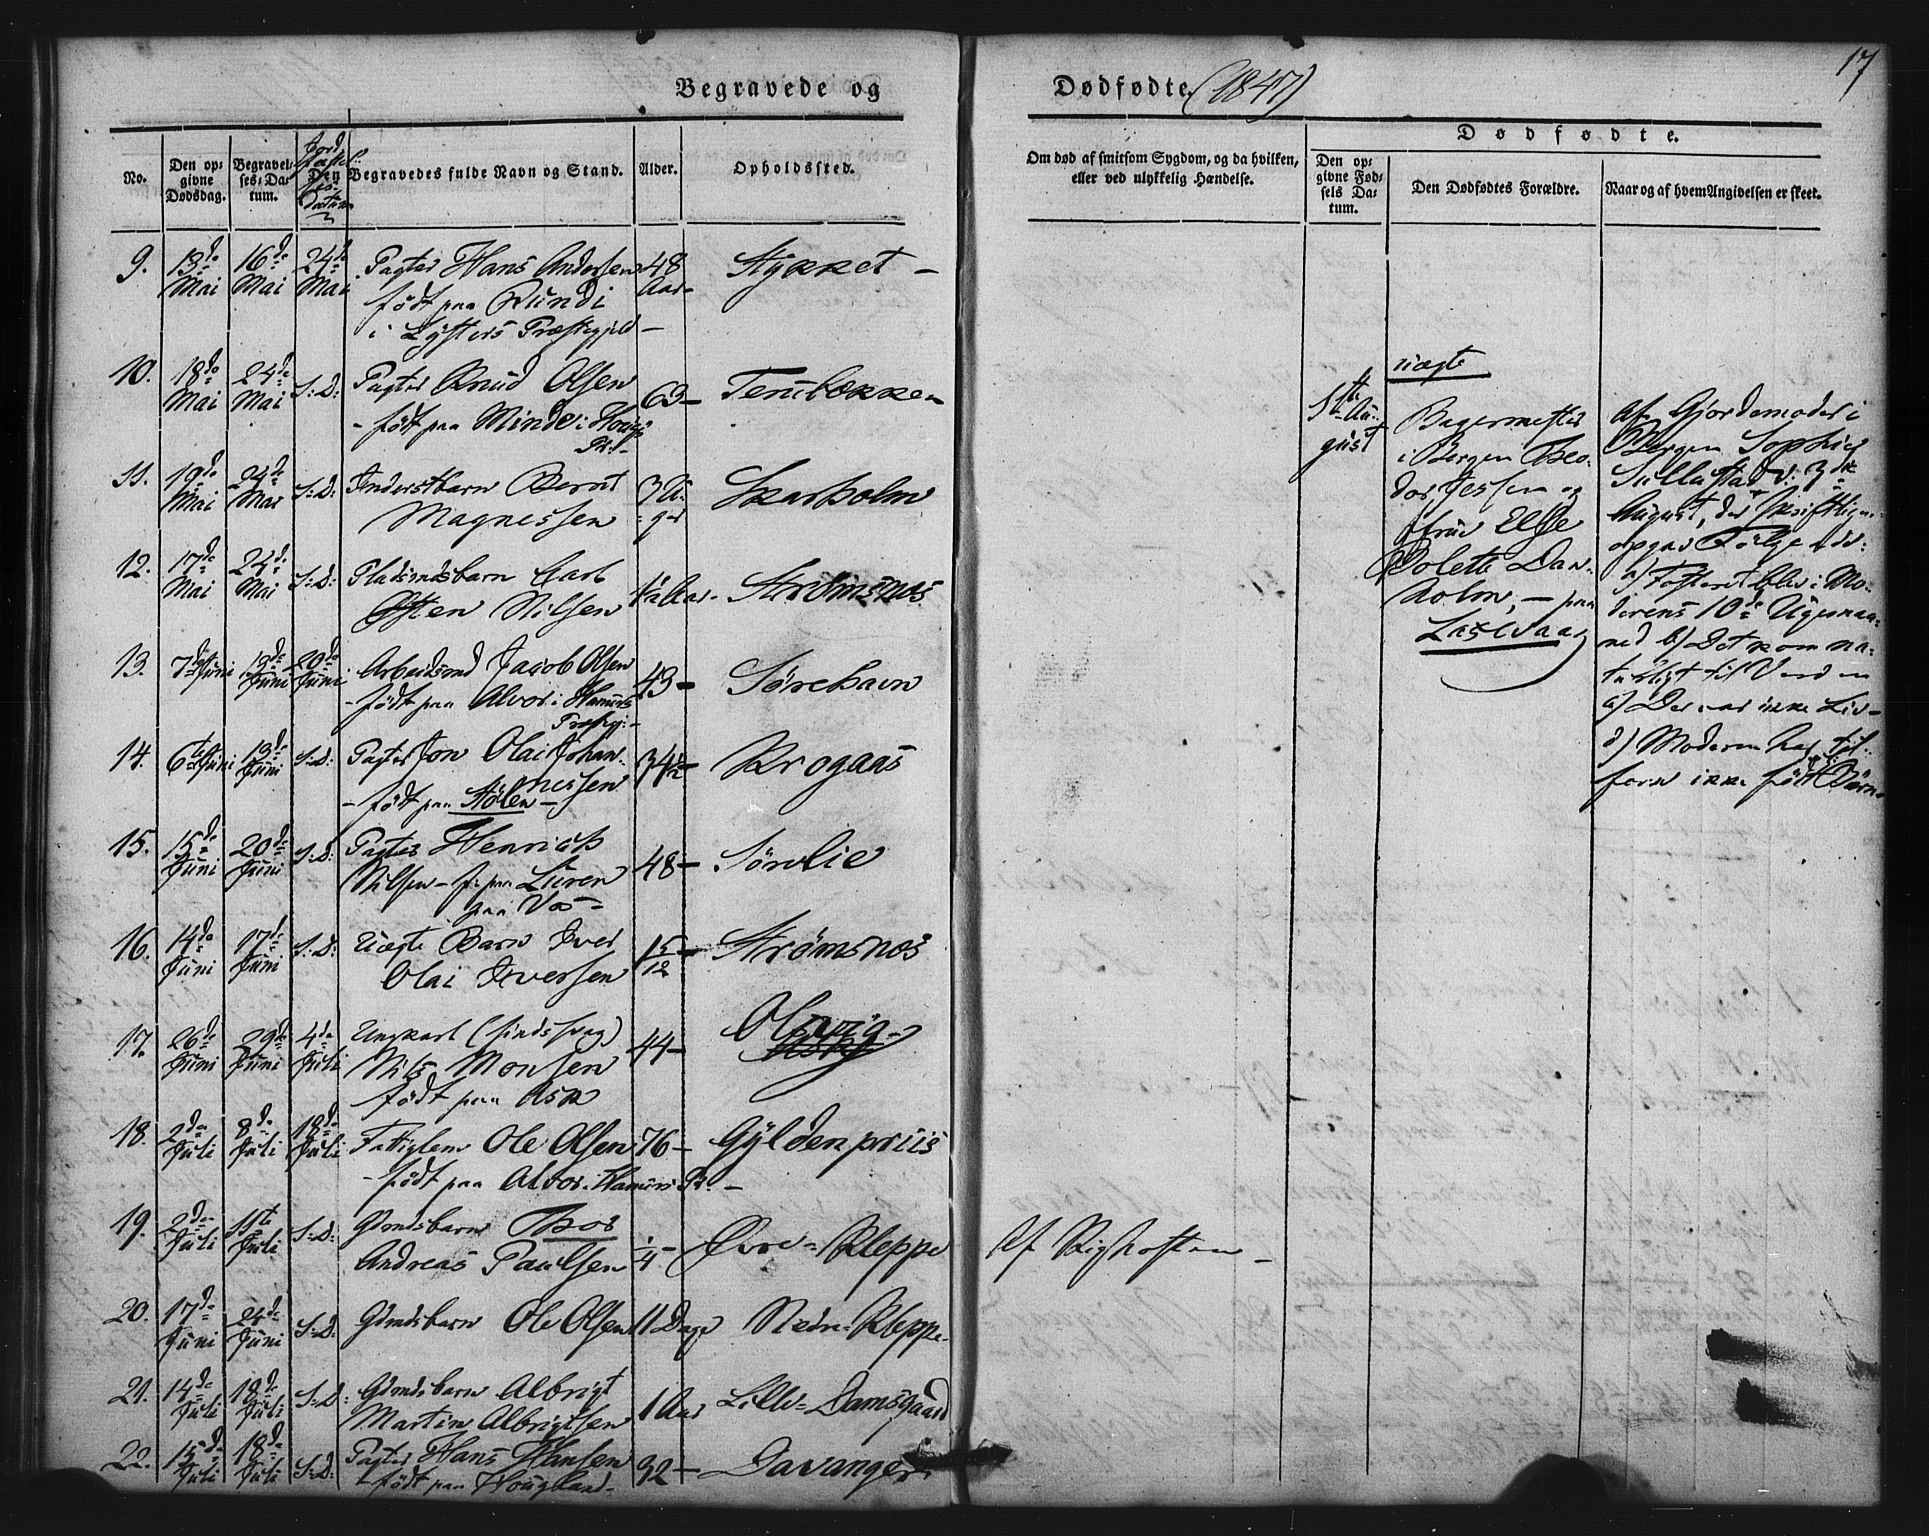 17
Begravede og Dødfødte (1847)
No.
Den opgivne Dødsdag.
Begravelses-Datum.
Jordfæstelses-Datum
Den Begravedes fulde Navn og Stand.
Alder.
Opholdssted.
Om død af smitsom Sygdom, og da hvilken,
eller ved ulykkelig Hændelse.
Dødfødte.
Den opgivne Fødsels Datum.
Den Dødfødtes Forældre.
Naar og af hvem Angivelsen er skeet.
9. 13de Mai 16de Mai 24de Mai Pagter Hans Andersen 48 Aar Stykket
født paa
i Lysters Præstegjeld
10. 18de Mai 24de Mai S: D: Pagter Knud Olsen 63
født paa Minde i Hougs
11. 19de Mai 24de Mai S: D: Inderstbarn Bernt 3 Uger Skarholm
Magnessen
12. 17de Mai 24de Mai S: D: Pladsmdsbarn Carl 1½ Aar Strømsnæs
Nilsen
13. 7de Juni 13de Juni 20de Juni Arbeidsmd Jacob Olsen 43 Sørehavn
født paa Alvør i Hammers
14. 6te Juni 13de Juni S: D: Pagter Jon Olai Johan- 34½ Krogaas
nessen
født paa Stølen
15. 15de Juni 20de Juni S: D: Pagter Henrich 48 Sørelie
Nilsen f. paa
paa Vos
16. 14de Juni 17de Juni S: D: Uægte Barn Iver 5/12 Strømsnæs
Olai Iversen
17. 26de Juni 29de Juni 4de Juli Ungkarl (sindssvag) 44 Olsvig
Nils Monsen
født paa Ask
18. 2den Juli 8de Juli 18de Juli Fattiglem Ole Olsen 76 Gyldenpriis
født paa Alvør i Hammers Pr.
19. 2den Juli 11te Juli S: D: Gdmdsbarn Thor ¼ Øvre-Kleppe Af Kighosten
Andreas Paulsen
20. 17de Juni 24de Juni S: D: Gdmdsbarn Ole Olsen 11 Dage Nedre-Kleppe
21. 14de Juli 18de Juli S: D: Gdmdsbarn Albrigt 1 Aar Lille-Damsgaard
Martin Albrigtsen
22. 15de Juli 18de Juli S: D: Pagter Hans Hansen 32 Davanger
født paa Hougland
1ste August
uægte
Bagermester
i Bergen Theo-
dor Jessen og
Fruw Else
Bolette Dan-
kolm, paa
Laxevaag
Af Gjordemoder i
Bergen Sophie
3die
August, der skriftligen
opgav Følgende:
a) Fosteret blev i Mo-
derens 10de Ugemaa-
ned, b) Det kom na-
turligt til Verden
c) Der var ikke Liv
d) Moderen har til-
forn ikke født Børn